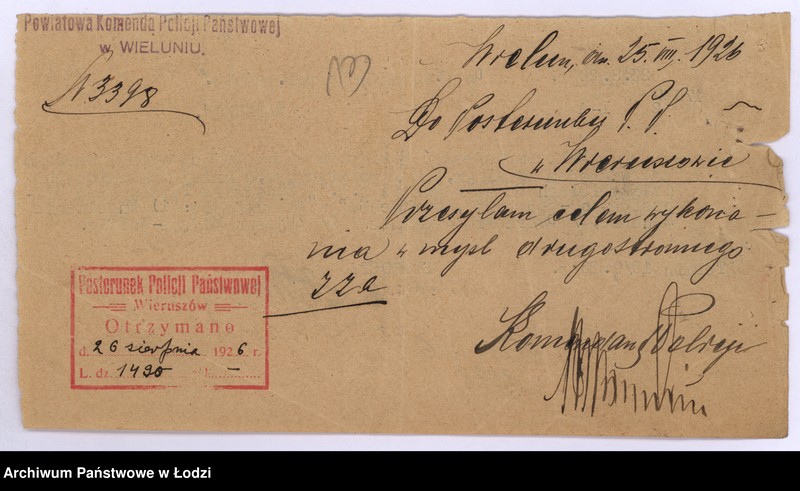 Powiatowa Komenda Policji Państwowej
w WIELUNIU.
N 3398
Wieluń, dn. 25.VIII. 1926
Do Posterunku P. P.
w Wieruszowie
Przesyłam celem wykona-
nia w myśl drugostronnego
Komendant Policji
Posterunek Policji Państwowej
Wieruszów
Otrzymano
d. 26 sierpnia 1926 r.
L. dz. 1490
Archiwum Państwowe w Łodzi